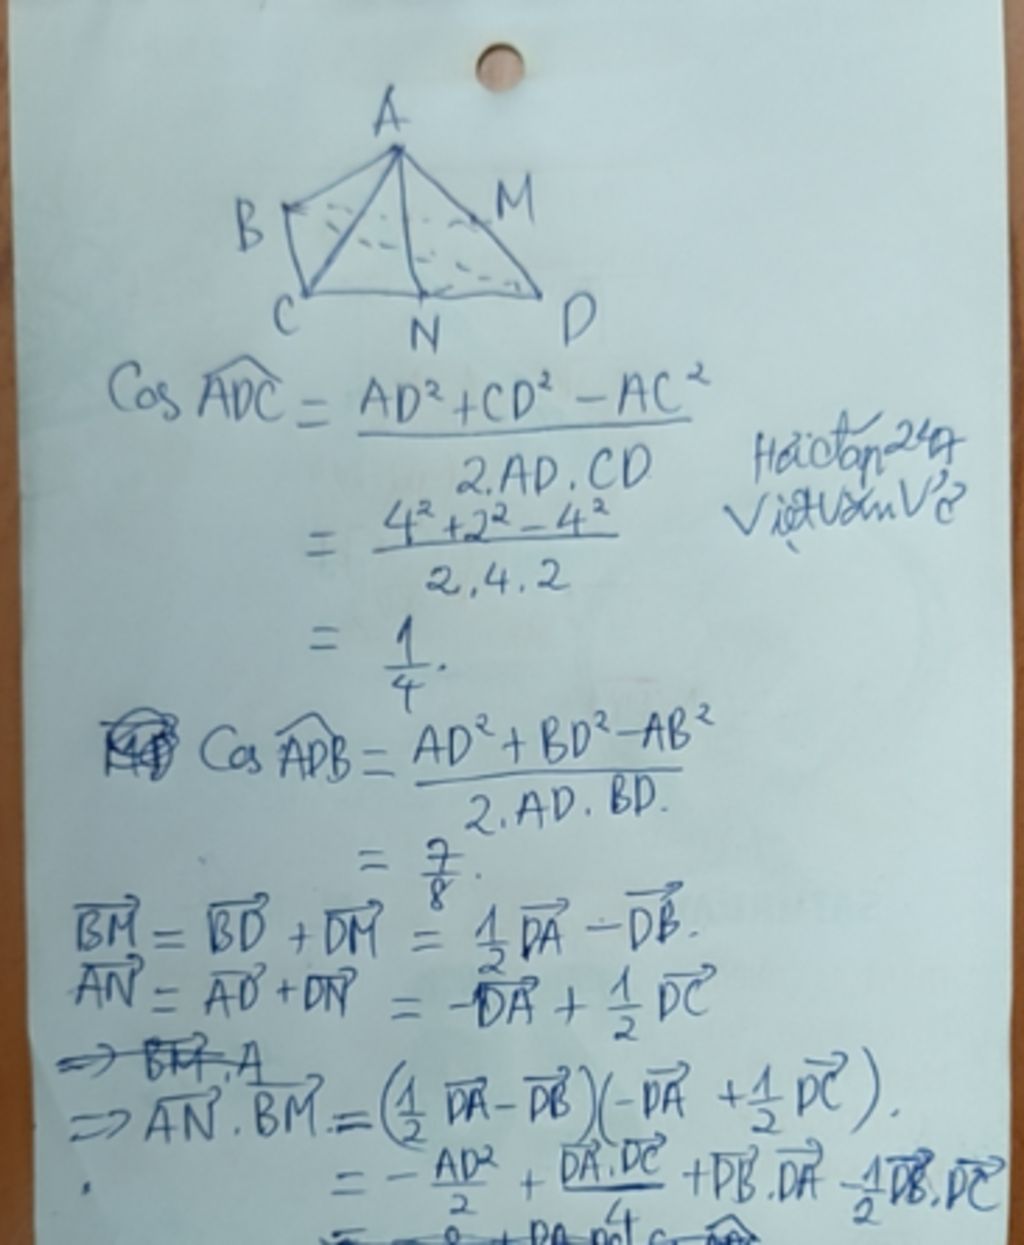 A
B
M
C
N
D
Cos ADC = AD² + CD² - AC² / 2.AD.CD
= 4² + 2² - 4² / 2.4.2
= 1/4.
Cos ADB = AD² + BD² - AB² / 2.AD.BD.
= 7/8.
BM = BD + DM = 1/2 DA - DB.
AN = AD + DN = -DA + 1/2 DC
=> BM.A
=> AN.BM = (1/2 DA - DB)(-DA + 1/2 DC).
= - AD²/2 + DA.DC/4 + DB.DA - 1/2 DB.DC